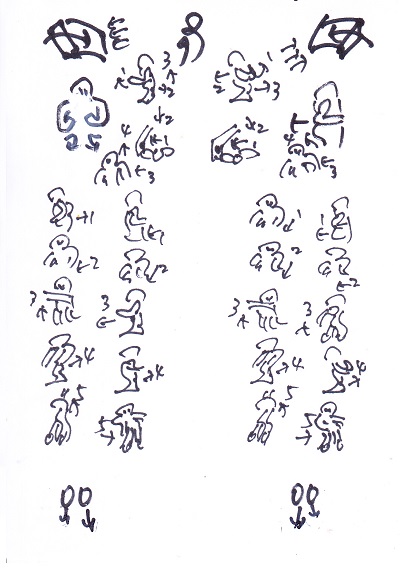 3 1
1 2 2 3
2 2
4 1 1 4
3 3
1 1 1 1
2 2 2 2
3 3 3 3
4 4 4 4
5 5 5 5